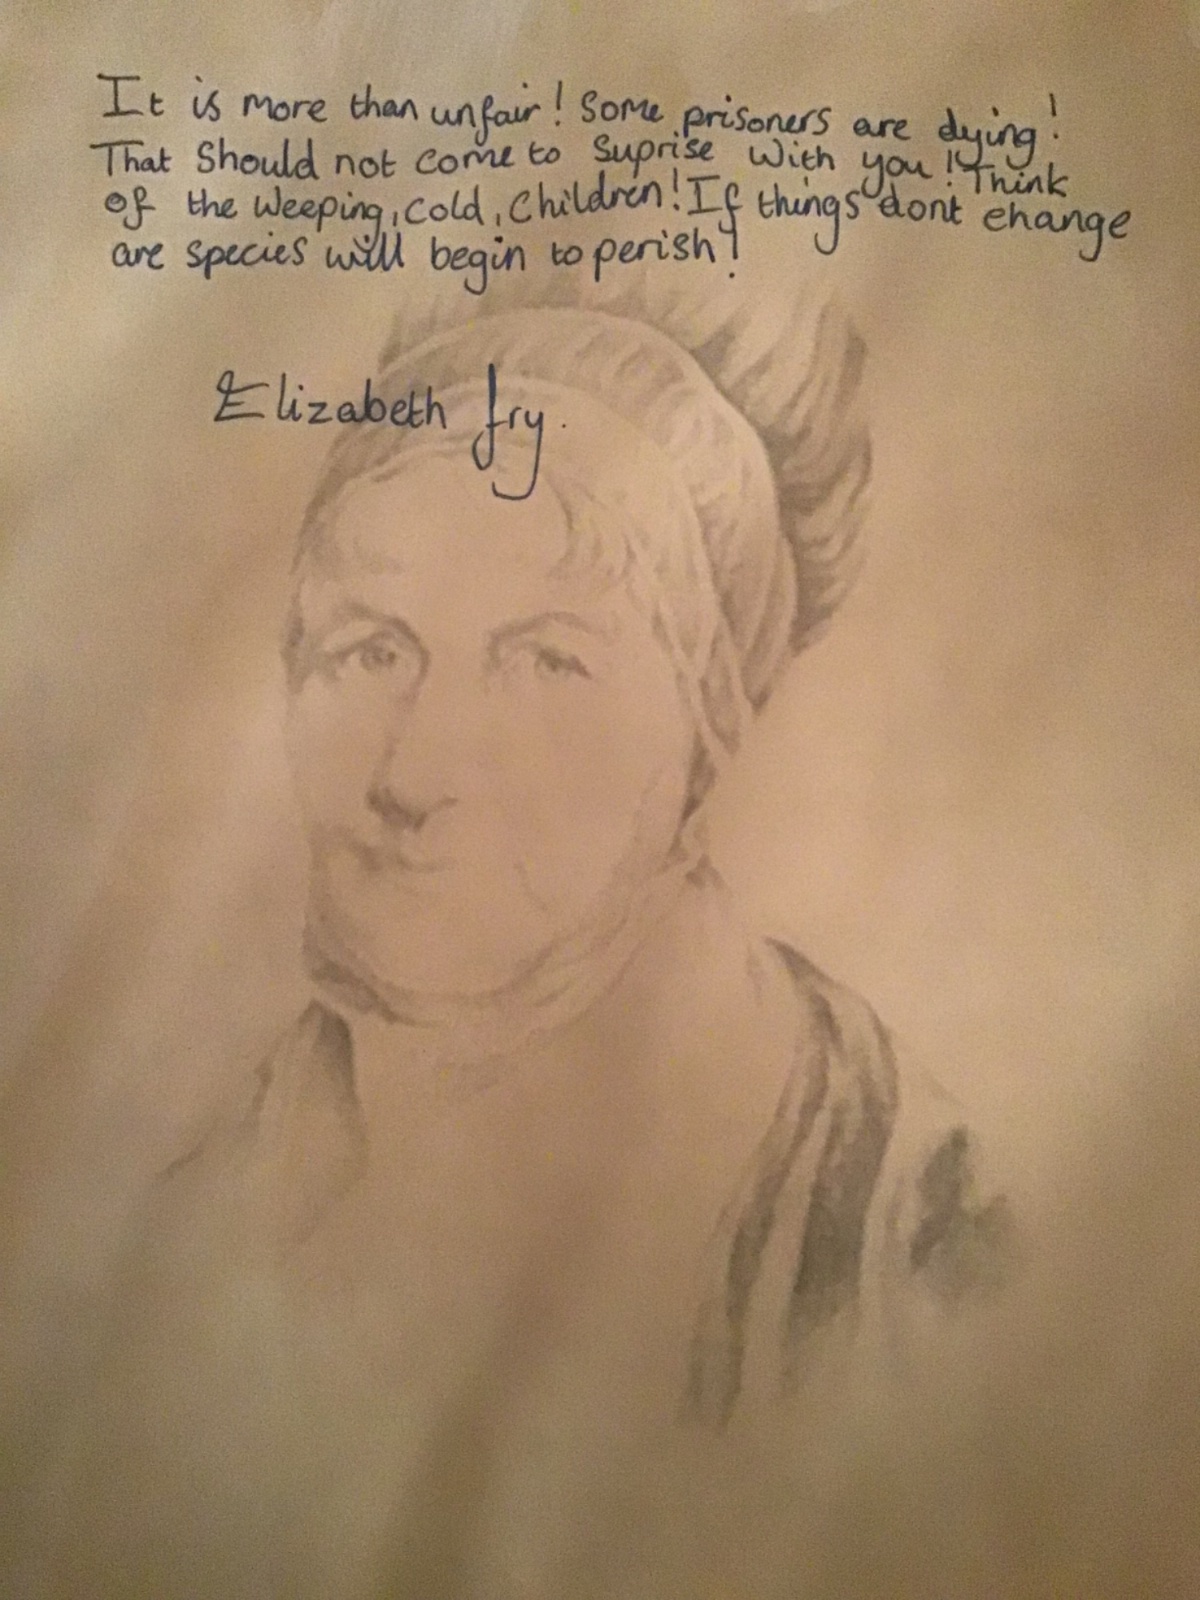 It is more than unfair! Some prisoners are dying!
That Should not come to Suprise With you! Think
of the weeping, cold, children! If things dont change
are species will begin to perish!
Elizabeth fry.